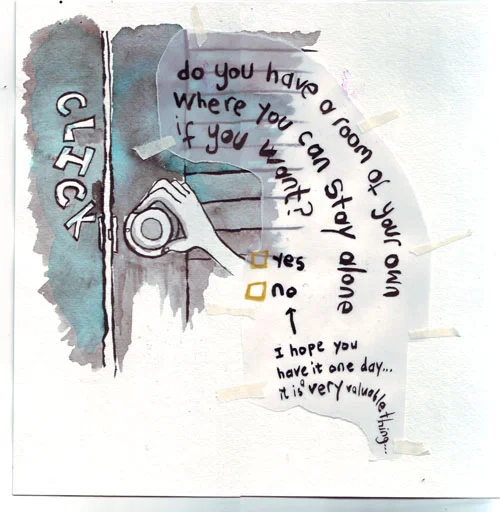 CLICK
do you have a room of your own
where you can stay alone
if you want?
yes
no
I hope you
have it one day...
it is a very valuable thing...